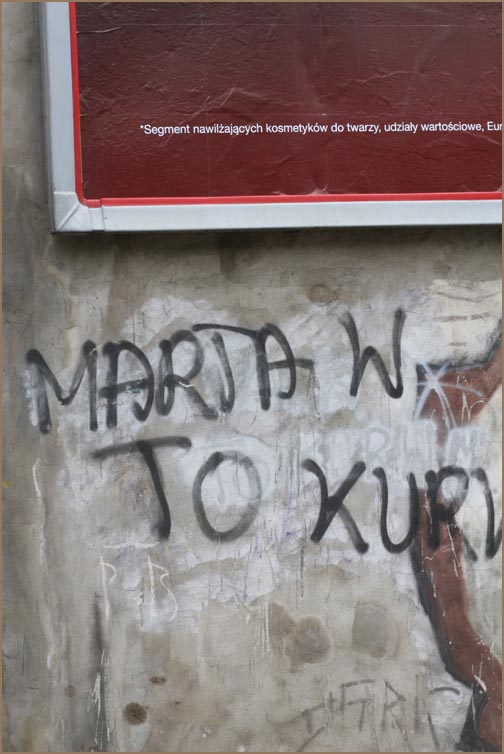 *Segment nawilżających kosmetyków do twarzy, udziały wartościowe, Eur
MARTA W
TO KURW
P B